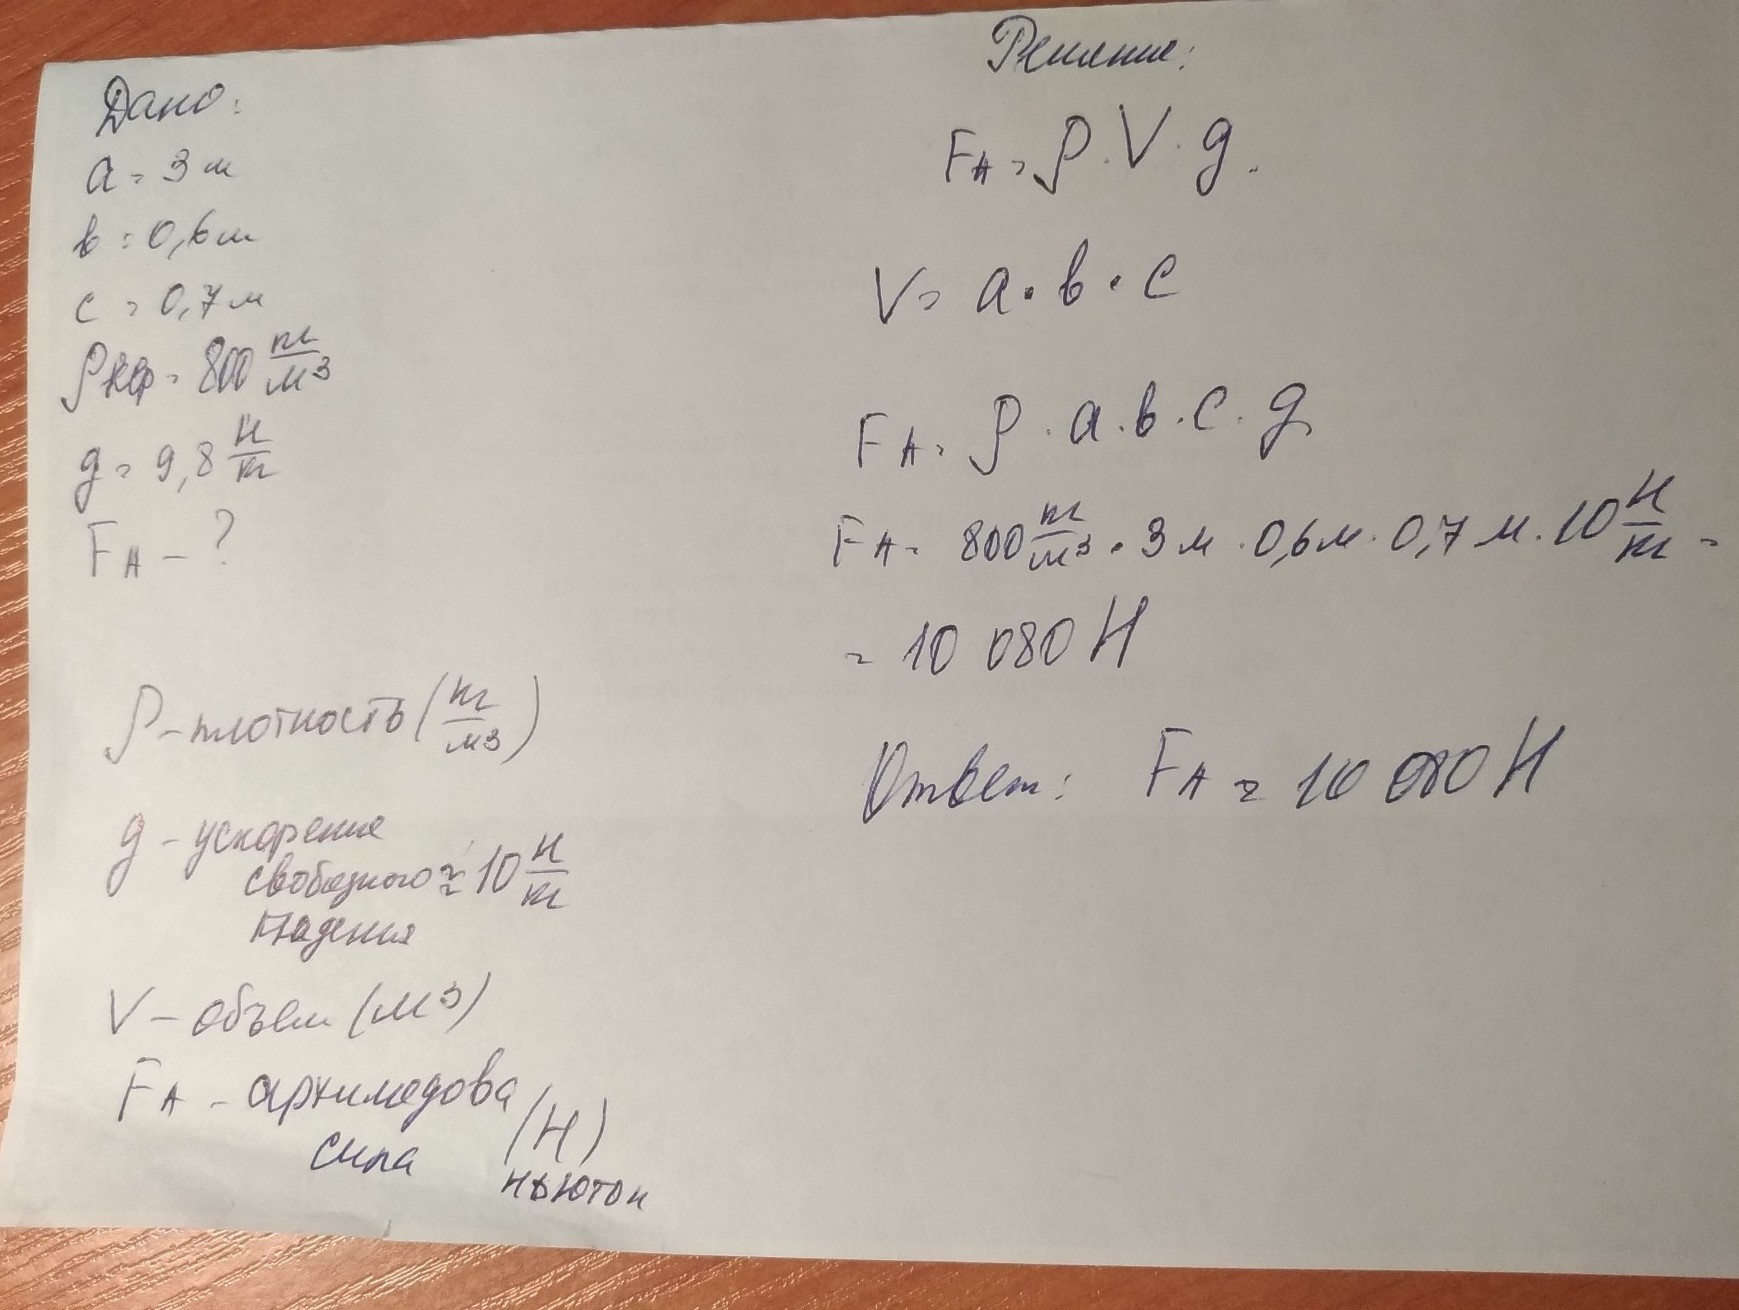 Дано:
a = 3 м
в = 0,6 м
c = 0,7 м
ρкер = 800 кг/м³
g = 9,8 Н/кг
FА - ?
ρ - плотность (кг/м³)
g - ускорение
свободного ≈ 10 Н/кг
падения
V - объем (м³)
FА - архимедова
сила (Н)
ньютон
Решение:
FА = ρ · V · g.
V = a · в · c
FА = ρ · a · в · c · g
FА = 800 кг/м³ · 3 м · 0,6 м · 0,7 м · 10 Н/кг =
= 10 080 Н
Ответ: FА = 10 080 Н